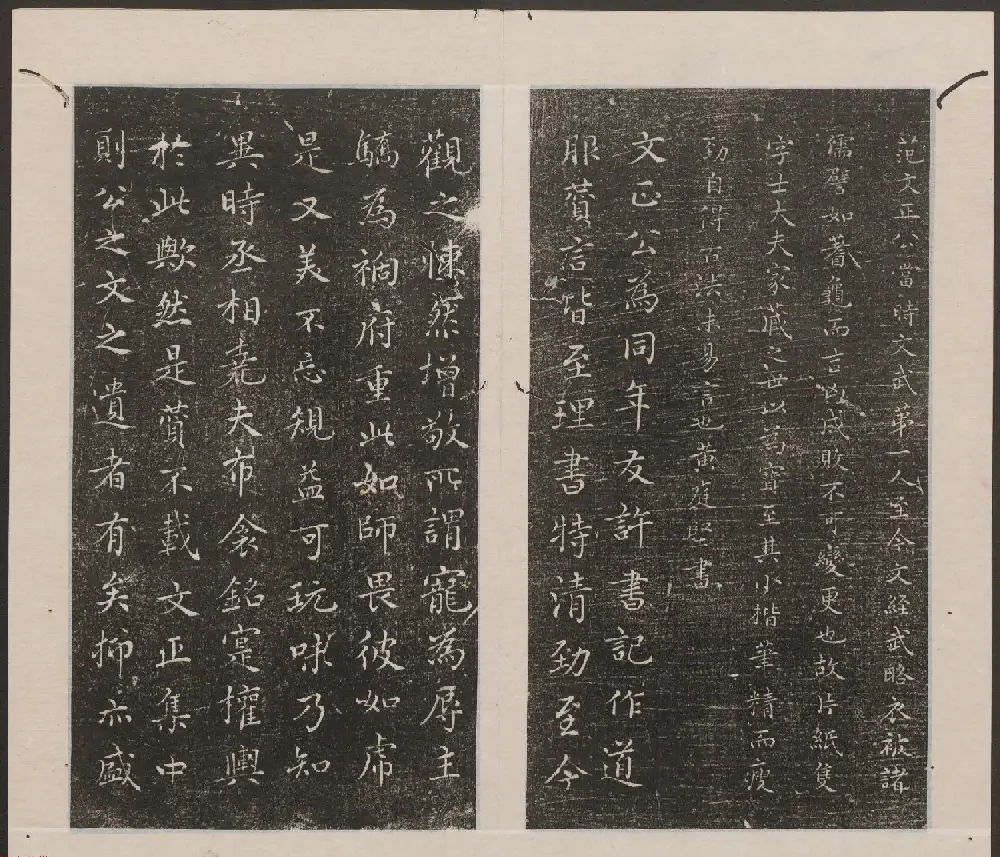 范文正公當時文武第一人至今文経武略衣被諸
儒譬如蓍龜而言吉凶成敗不可變更也故片紙隻
字士大夫家藏之世以為寶至其小揩筆精而瘦
勁自得古法未易言也黄庭堅書
文正公為同年友許書記作道
服贊言皆至理書特清勁至今
觀之悚然增敬所謂寵為辱主
驕為禍府重此如師畏彼如虎
是又美不忘規益可玩味乃知
異時丞相堯夫布衾銘寔權輿
於此歟然是贊不載文正集中
則公之文之遺者有矣抑亦盛